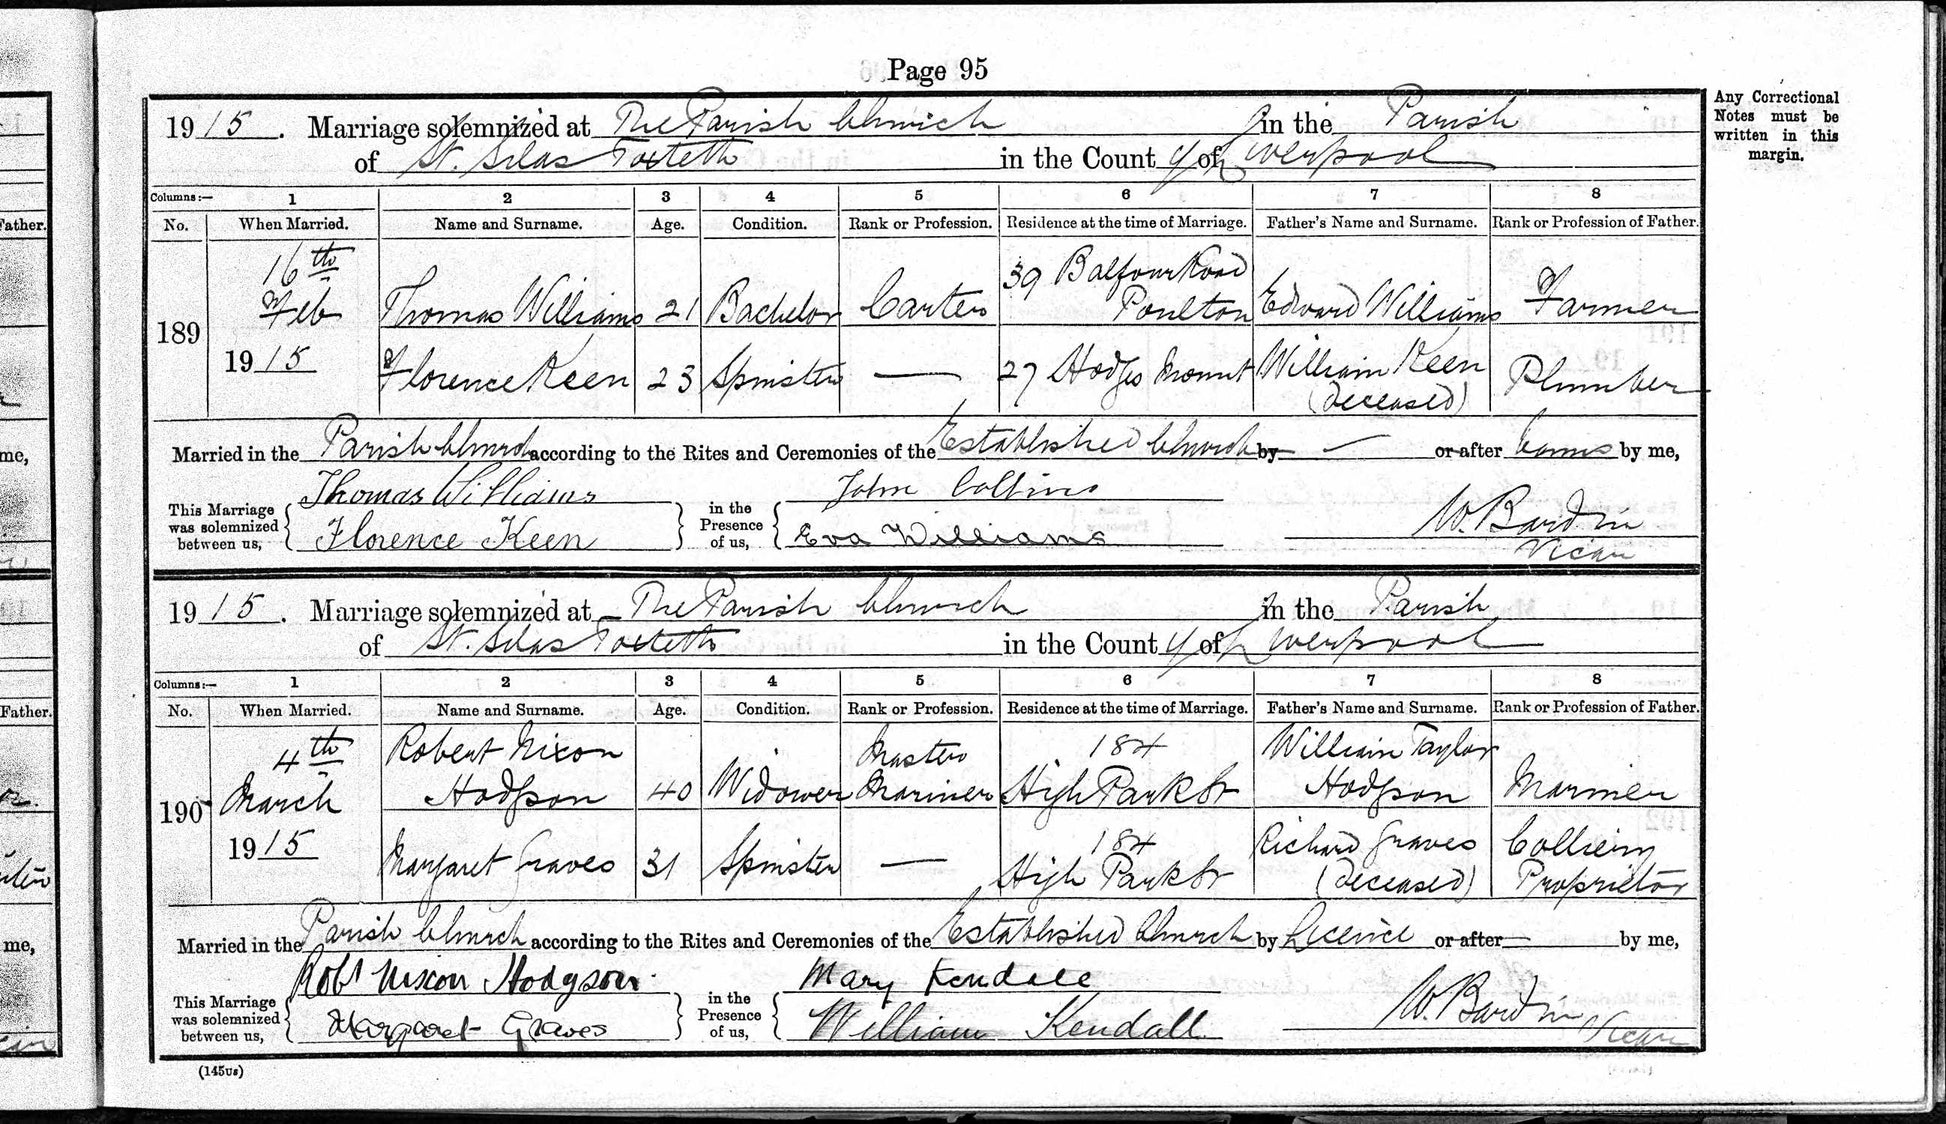 Page 95
Any Correctional
Notes must be
written in this
margin.
1915. Marriage solemnized at The Parish Church in the Parish
of St. Silas Toxteth in the County of Liverpool
Columns:— 1 2 3 4 5 6 7 8
No. When Married. Name and Surname. Age. Condition. Rank or Profession. Residence at the time of Marriage. Father's Name and Surname. Rank or Profession of Father.
189 16th Feb 1915 Thomas Williams 21 Bachelor Carter 39 Balfour Road Poulton Edward Williams Farmer
Florence Keen 23 Spinster — 27 Hodges Mount William Keen (deceased) Plumber
Married in the Parish Church according to the Rites and Ceremonies of the Established Church by — or after banns by me,
This Marriage was solemnized between us, Thomas Williams Florence Keen in the Presence of us, John Collins Eva Williams W. Bardin Vicar
1915. Marriage solemnized at The Parish Church in the Parish
of St. Silas Toxteth in the County of Liverpool
Columns:— 1 2 3 4 5 6 7 8
No. When Married. Name and Surname. Age. Condition. Rank or Profession. Residence at the time of Marriage. Father's Name and Surname. Rank or Profession of Father.
190 4th March 1915 Robert Nixon Hodgson 40 Widower Master Mariner 184 High Park St William Taylor Hodgson Mariner
Margaret Graves 31 Spinster — 184 High Park St Richard Graves (deceased) Colliery Proprietor
Married in the Parish Church according to the Rites and Ceremonies of the Established Church by Licence or after — by me,
This Marriage was solemnized between us, Robt Nixon Hodgson. Margaret Graves in the Presence of us, Mary Kendall William Kendall W. Bardin Vicar
(145us)
Father.
me,
Father.
me,